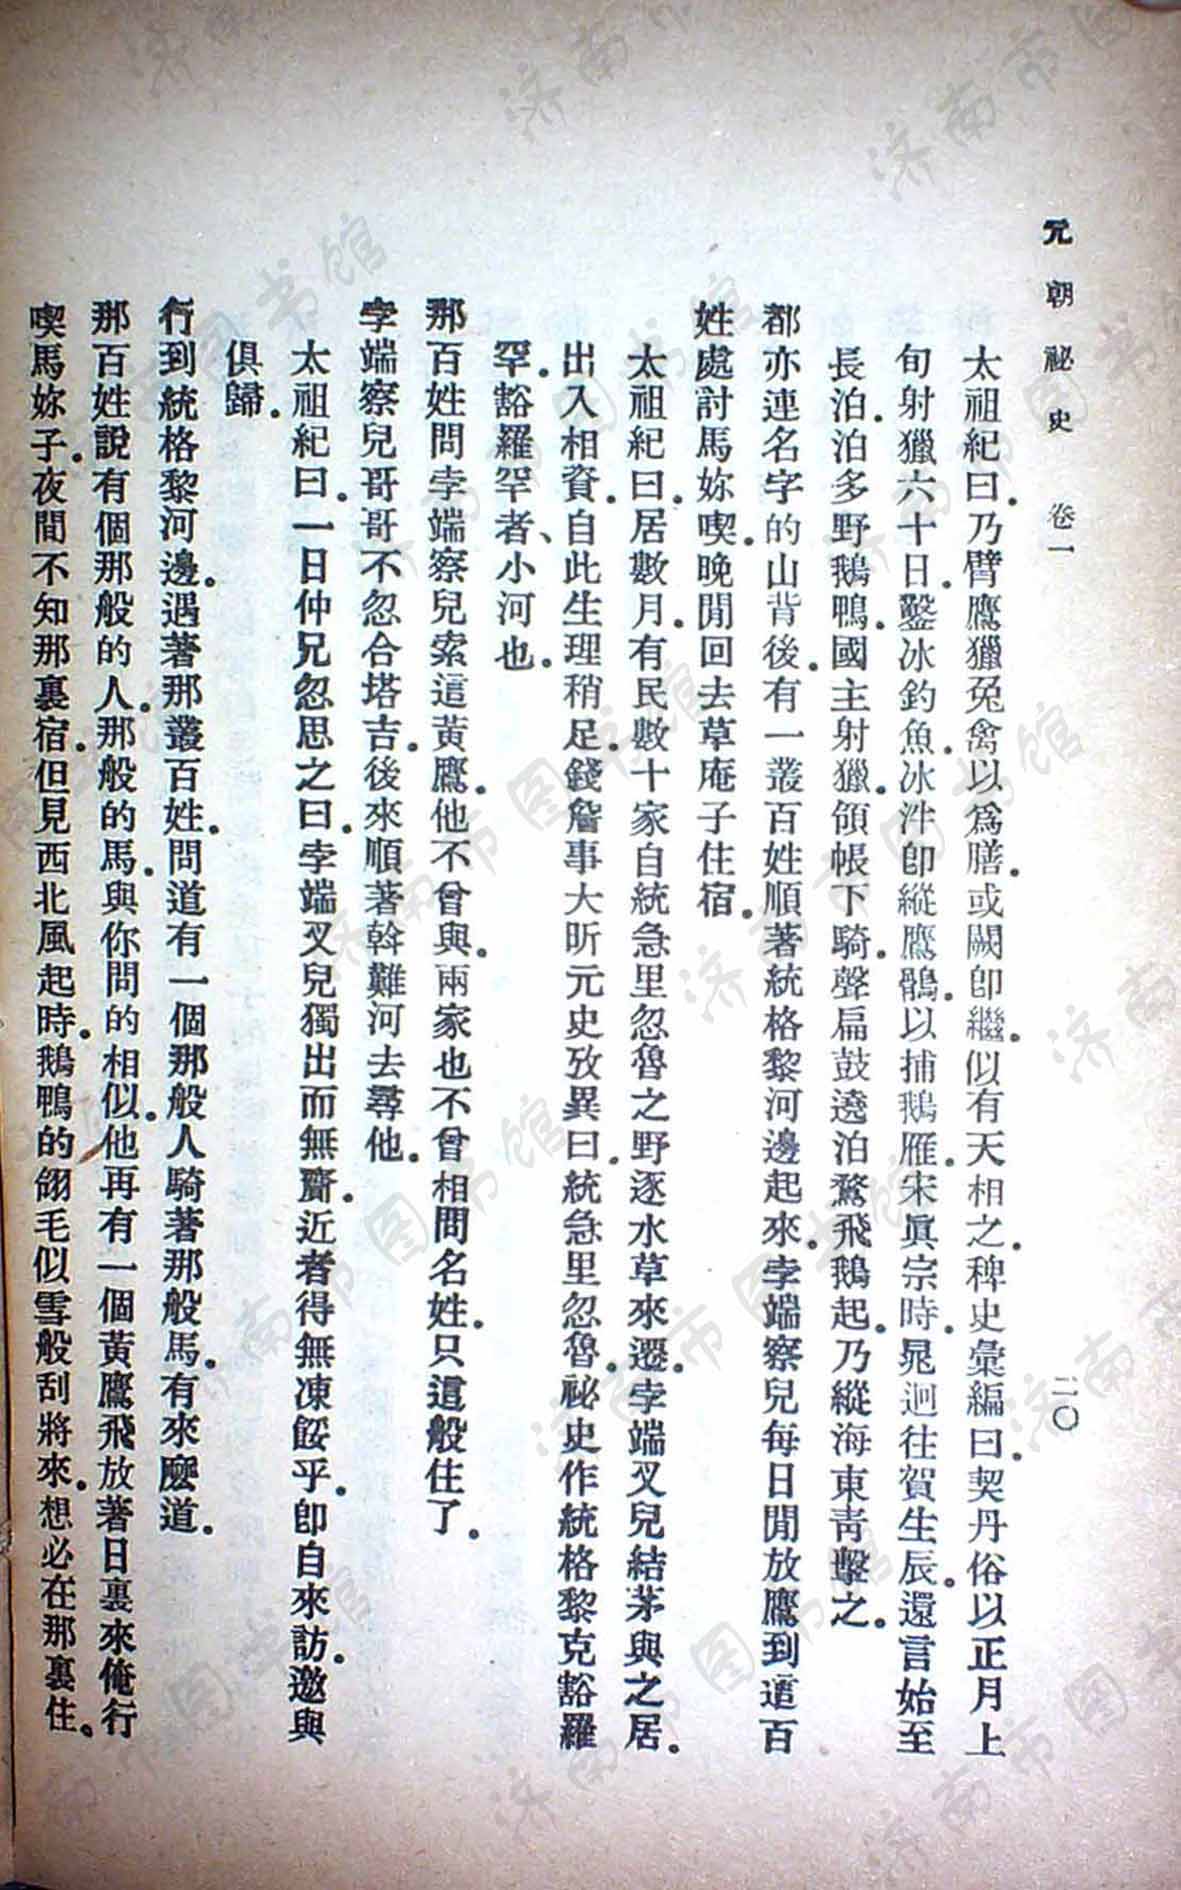 元朝祕史 卷一 二〇
太祖紀曰.乃臂鷹獵兔禽以爲膳.或闕卽繼.似有天相之.稗史彙編曰.契丹俗以正月上
旬射獵六十日.鑿冰釣魚.冰泮卽縱鷹鶻.以捕鵝雁.宋眞宗時.晁迥往賀生辰.還言始至
長泊.泊多野鵝鴨.國主射獵.領帳下騎.聲扁鼓遶泊驚飛鵝起.乃縱海東靑擊之.
都亦連名字的山背後.有一叢百姓順著統格黎河邊起來.孛端察兒每日閒放鷹到這百
姓處討馬妳喫.晚閒回去草庵子住宿.
太祖紀曰.居數月.有民數十家自統急里忽魯之野逐水草來遷.孛端叉兒結茅與之居.
出入相資.自此生理稍足.錢詹事大昕元史攷異曰.統急里忽魯.祕史作統格黎克豁羅
罕.豁羅罕者、小河也.
那百姓問孛端察兒索這黃鷹.他不曾與.兩家也不曾相問名姓.只這般住了.
孛端察兒哥哥不忽合塔吉.後來順著斡難河去尋他.
太祖紀曰.一日仲兄忽思之曰.孛端叉兒獨出而無齎.近者得無凍餒乎.卽自來訪.邀與
俱歸.
行到統格黎河邊.遇著那叢百姓.問道有一個那般人騎著那般馬.有來麼道.
那百姓說有個那般的人.那般的馬.與你問的相似.他再有一個黃鷹飛放著日裏來俺行
喫馬妳子.夜間不知那裏宿.但見西北風起時.鵝鴨的翎毛似雪般刮將來.想必在那裏住.
济南市图书馆
济南市图书馆
济南市图书馆
济南市图书馆
济南市图书馆
济南市图书馆